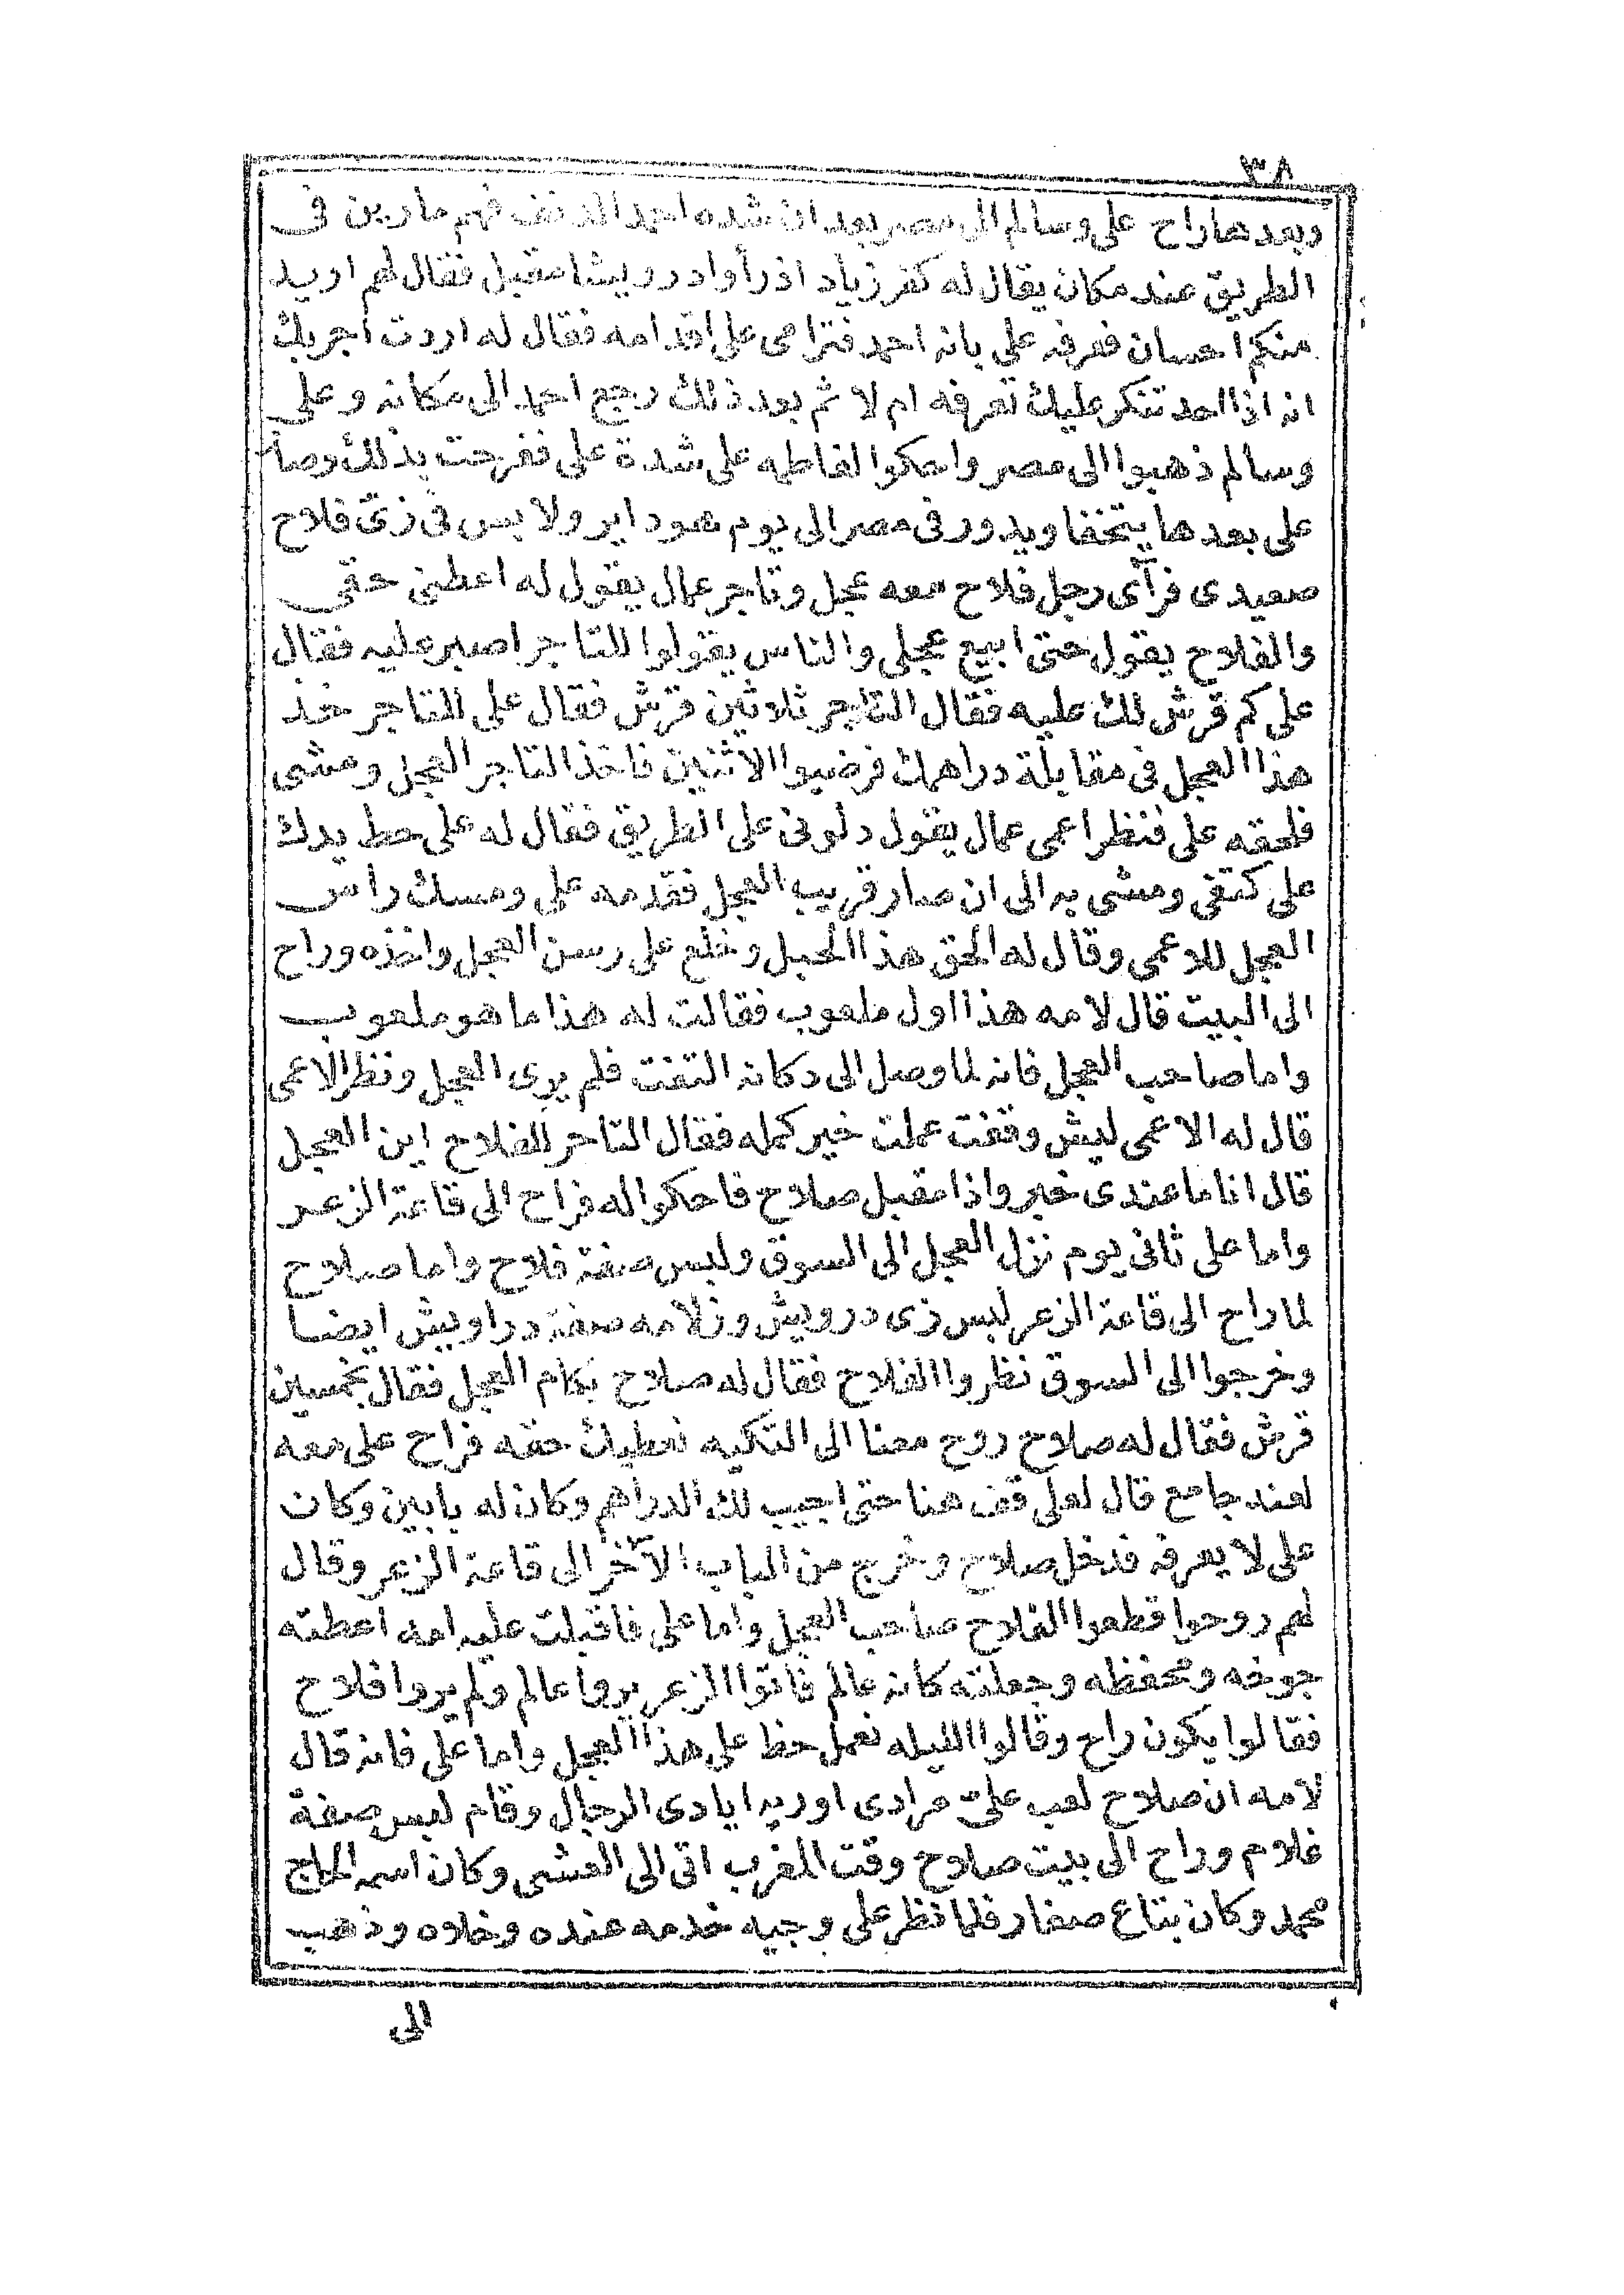 ٣٨
وبعدها راح على وسالم الى مصر بعد ان شده احمد الدنف فهم مارين فى
الطريق عند مكان يقال له كفر زياد اذ رأوا درويشا مقبل فقال لهم اريد
منكم احسان فعرفه على بانه احمد فترامى على اقدامه فقال له اردت اجربك
انه اذا احد تنكر عليك تعرفه ام لا ثم بعد ذلك رجع احمد الى مكانه وعلى
وسالم ذهبوا الى مصر واحكوا لفاطمه على شدة على ففرحت بذلك وصار
على بعدها يتخفا ويدور فى مصر الى يوم هو داير ولابس فى زى فلاح
صعيدى فرآى رجل فلاح معه عجل وتاجر عمال يقول له اعطنى حقى
والفلاح يقول حتى ابيع عجلى والناس يقولوا للتاجر اصبر عليه فقال
على كم قرش لك عليه فقال التاجر ثلاثين قرش فقال على للتاجر خذ
هذا العجل فى مقابلة دراهمك فرضيوا الاثنين فاخذ التاجر العجل ومشى
فلحقه على فنظر اعمى عمال يقول دلونى على الطريق فقال له على حط يدك
على كتفى ومشى به الى ان صار قريب العجل فقدمه على ومسك راس
العجل للاعمى وقال له الحق هذا الحبل وخلع على رسن العجل واخذه وراح
الى البيت قال لامه هذا اول ملعوب فقالت له هذا ما هو ملعوب
واما صاحب العجل فانه لما وصل الى دكانه التفت فلم يرى العجل ونظر الاعمى
قال له الاعمى ليش وقفت عملت خير كمله فقال التاجر للفلاح اين العجل
قال انا ما عندى خبر واذا مقبل صلاح فاحكوا له فراح الى قاعة الزعر
واما على ثانى يوم نزل العجل الى السوق ولبس صفة فلاح واما صلاح
لما راح الى قاعة الزعر لبس زى درويش وزلامه صفة دراويش ايضا
وخرجوا الى السوق نظروا الفلاح فقال له صلاح بكام العجل فقال بخمسين
قرش فقال له صلاح روح معنا الى التكيه نعطيك حقه فراح على معه
لعند جامع قال لعلى قف هنا حتى اجيب لك الدراهم وكان له بابين وكان
على لا يعرفه فدخل صلاح وخرج من الباب الآخر الى قاعة الزعر وقال
لهم روحوا قطعوا الفلاح صاحب العجل واما على فاقبلت عليه امه اعطته
جوخه ومحفظه وجعلته كانه عالم فاتوا الزعر يروا عالم ولم يروا فلاح
فقالوا يكون راح وقالوا الليله نعمل حظ على هذا العجل واما على فانه قال
لامه ان صلاح لعب على مرادى اوريه ايادى الرجال وقام لبس صفة
غلام وراح الى بيت صلاح وقت المغرب اتى الى العشى وكان اسمه الحاج
محمد وكان بتاع صغار فلما نظر على وجيه خدمه عنده وخلاه وذهب
الى